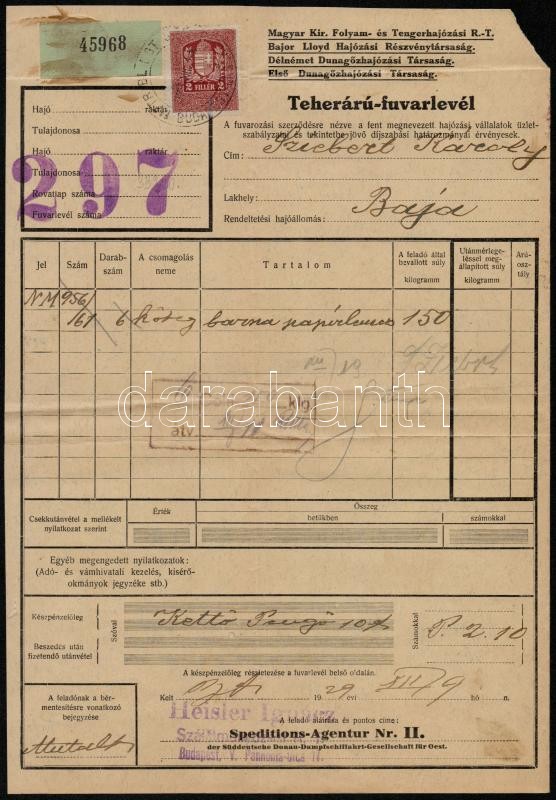 45968
2 FILLÉR 2
Magyar Kir. Folyam- és Tengerhajózási R.-T.
Bajor Lloyd Hajózási Részvénytársaság.
Délnémet Dunagőzhajózási Társaság.
Első Dunagőzhajózási Társaság.
Teherárú-fuvarlevél
A fuvarozási szerződésre nézve a fent megnevezett hajózási vállalatok üzlet-
szabályzatai és tekintetbejövő díjszabási határozmányai érvényesek.
Hajó raktár
Tulajdonosa
Hajó raktár
Tulajdonosa
Rovatlap száma
Fuvarlevél száma
297
Cím: Sziebert Károly
Lakhely: Baja
Rendeltetési hajóállomás:
Jel
Szám
Darab-
szám
A csomagolás
neme
Tartalom
A feladó által
bevallott súly
kilogramm
Utánmérlege-
léssel meg-
állapított súly
kilogramm
Arú-
osz-
tály
NM 956/
/61 6 köteg barna papírlemez 150
darabanth
Csekkutánvétel a mellékelt
nyilatkozat szerint
Érték
Összeg
betükben
számokkal
Egyéb megengedett nyilatkozatok:
(Adó- és vámhivatali kezelés, kisérő-
okmányok jegyzéke stb.)
Készpénzelőleg
Beszedés után
fizetendő utánvétel
Szóval
Kettő Pengő 10 f
Számokkal
P. 2.10
A készpénzelőleg részletezése a fuvarlevél belső oldalán.
Kelt 1929 XII/9 hó n.
A feladónak a bér-
mentesítésre vonatkozó
bejegyzése
Heisler Ignácz
A feladó aláírása és pontos címe:
Speditions-Agentur Nr. II.
der Süddeutsche Donau-Dampfschiffahrt-Gesellschaft für Oest.
Budapest, V. Pannonia-utca